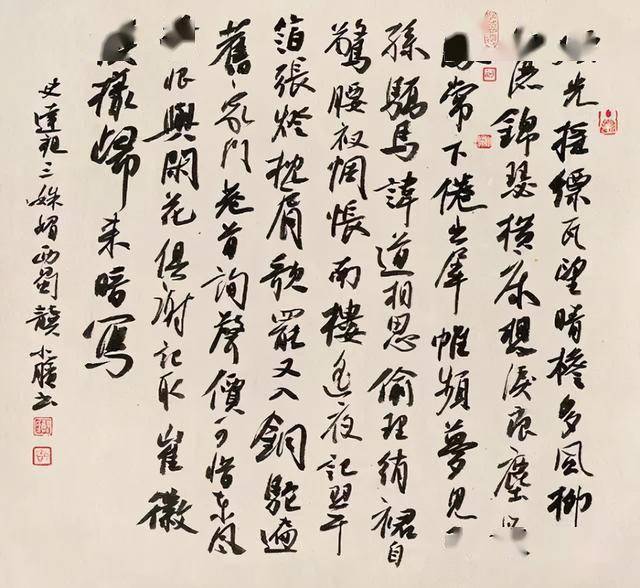 光搖縹瓦望晴檐多風柳
灑錦瑟橫床想淚痕塵
常下倦出犀帷頻夢見
孫驕馬諱道相思偷理綃裙自
驚腰衩惆悵南樓遙夜記翠
箔張燈枕肩歌罷又入銅駝遍
舊家門巷首詢聲價可惜東風
恨與閑花俱謝記取崔徽
樣歸來暗寫
史達祖三姝媚西蜀龔小書